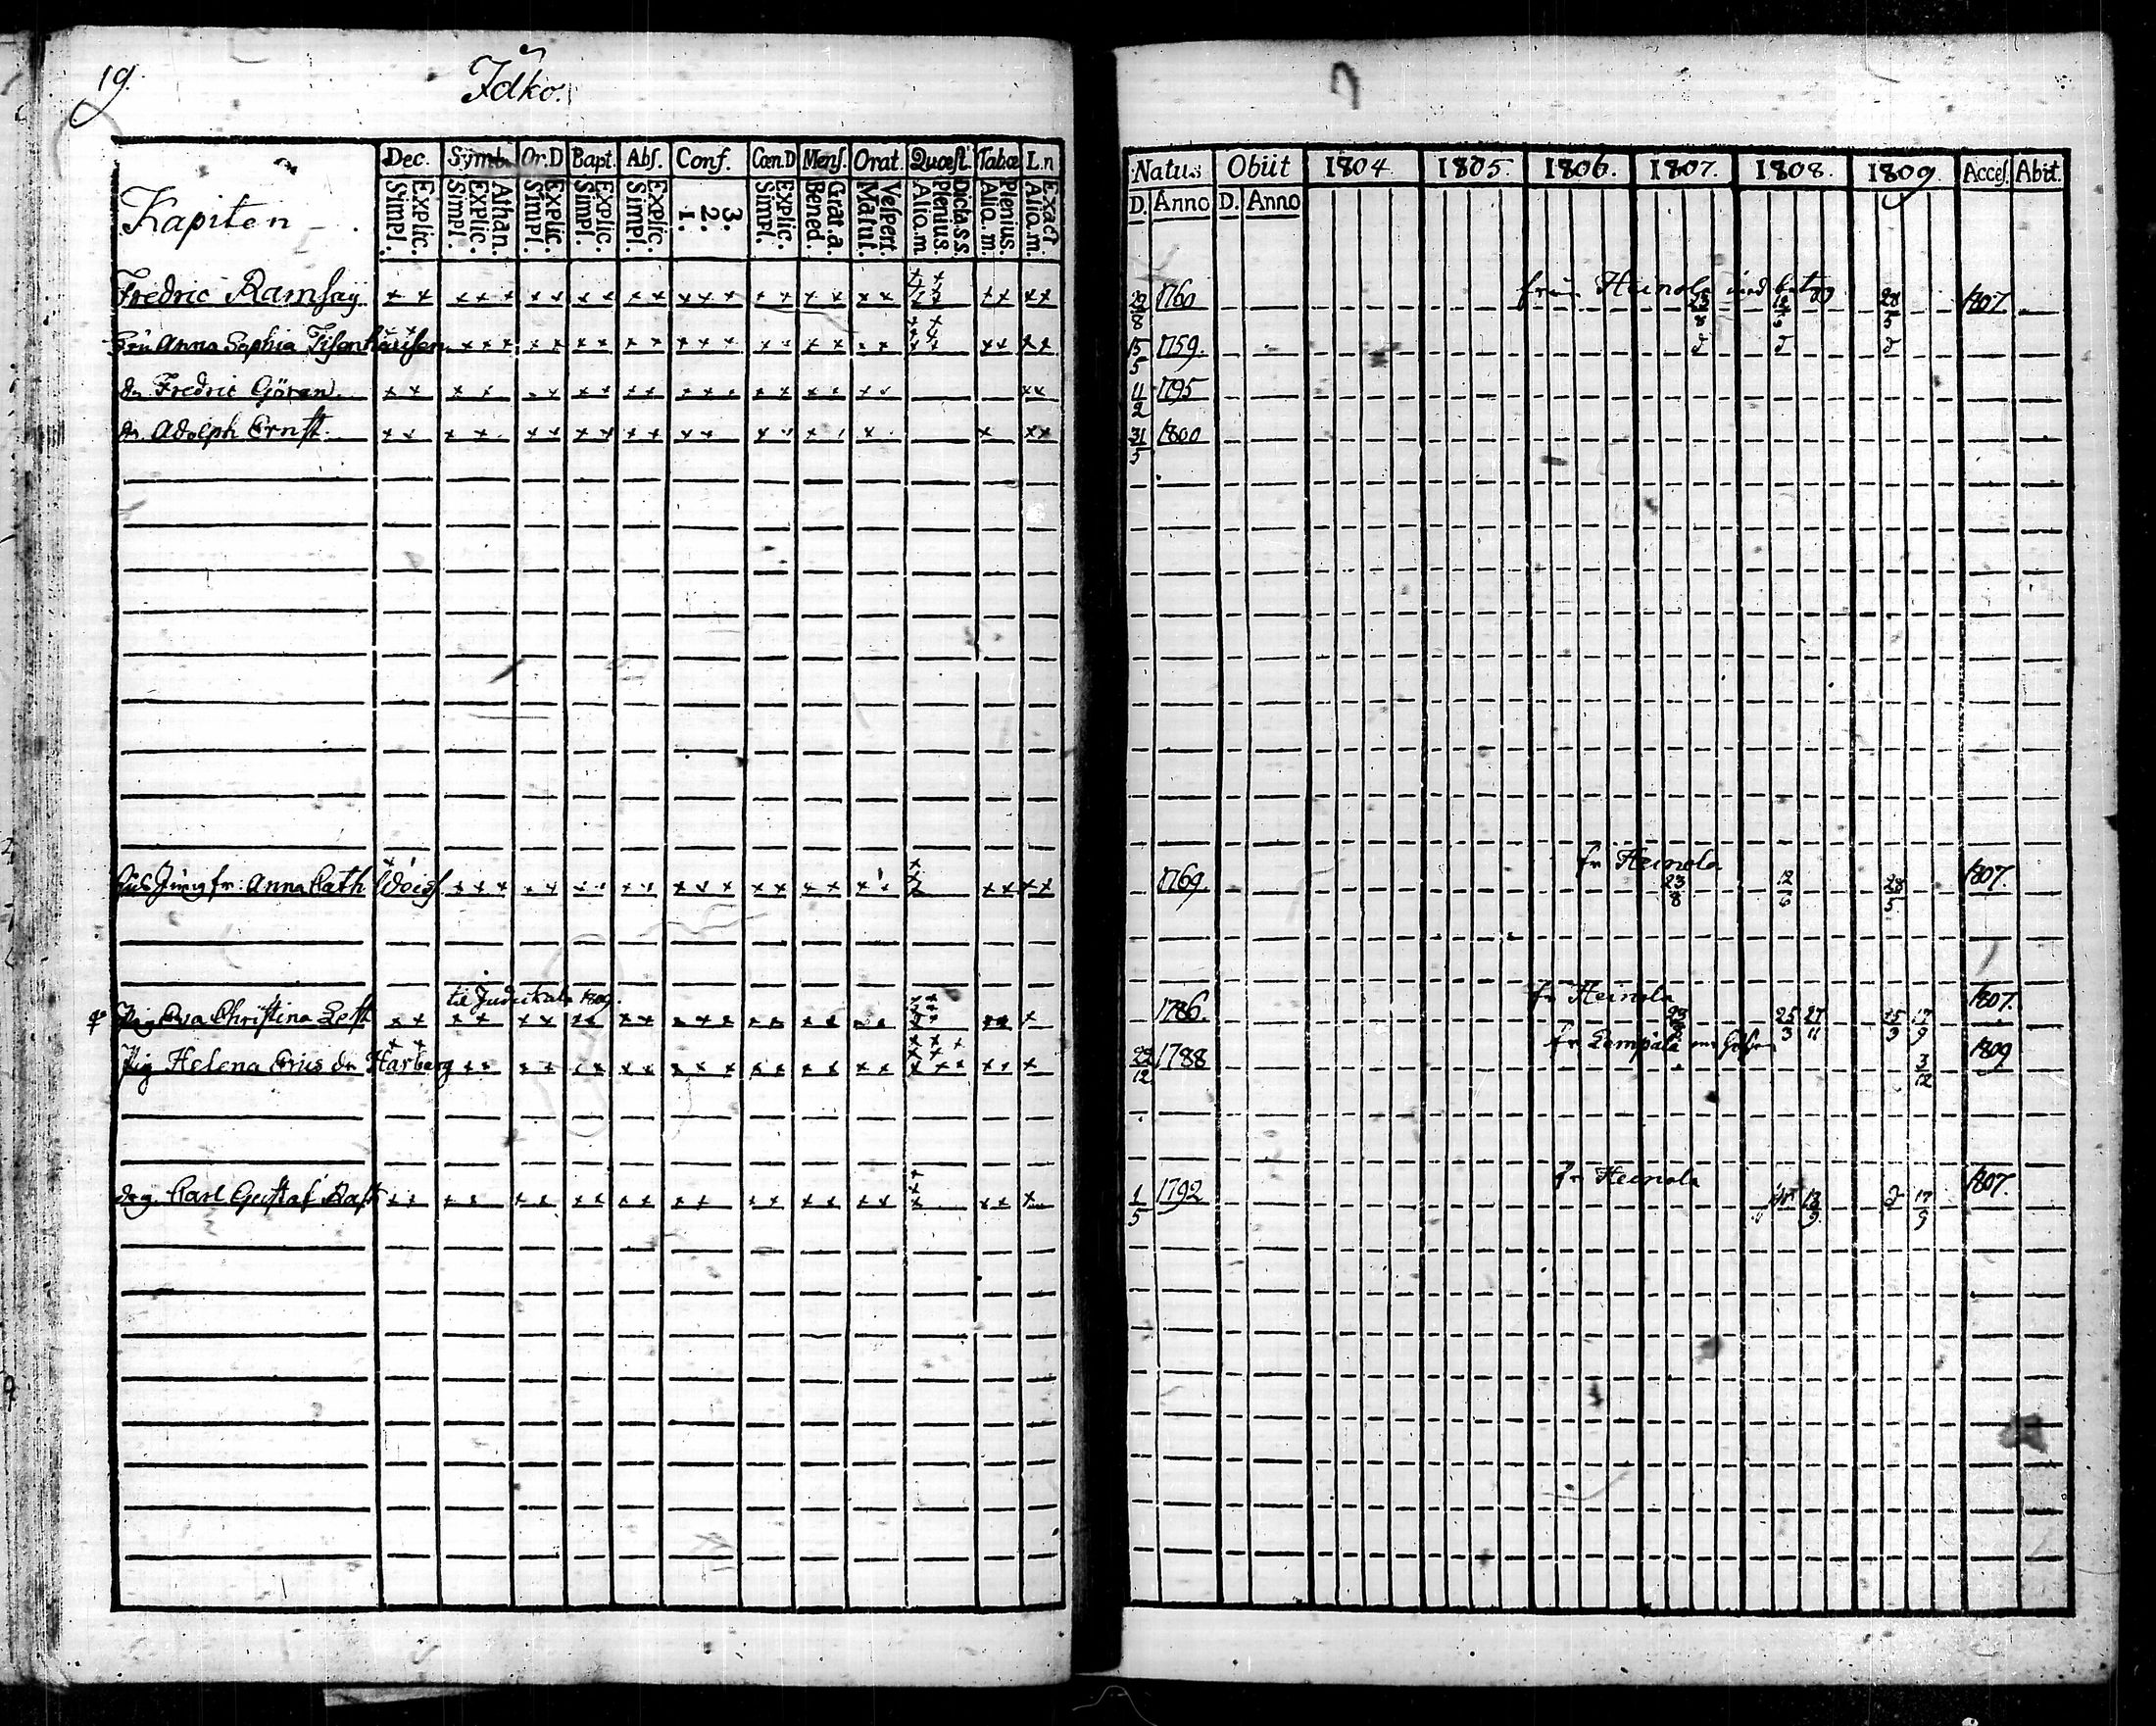 19.
Idko.
Dec. Symb. Or.D Bapt. Abſ. Conf. Cœn.D Menſ. Orat. Quœſt. Tabœ L.n
Kapiten
Explic. Simpl. Athan. Explic. Simpl. Explic. Simpl. Explic. Simpl. Explic. Simpl. 3. 2. 1. Explic. Simpl. Grat.a. Bened. Veſpert. Matut. Dicta.s.s. Plenius. Aliq.m Plenius. Aliq.m. Exact Aliq.m.
Natus Obiit 1804. 1805. 1806. 1807. 1808. 1809. Acceſ. Abit.
D. Anno D. Anno
Fredric Ramſay 29/8 1760 från Heinola med betyg 23/8 12/6 28/5 1807
Fru Anna Sophia Tiſenhauſen 15/5 1759. d d d
Fredric Göran. 11/2 1795
Adolph Ernſt. 31/5 1800
Jungfr. Anna Cath 1769. fr Heinola 23/8 12/6 28/5 1807.
1809.
Pig Eva Chriſtina 1786. fr Heinola 23/8 25/3 27/11 25/3 17/9 1807.
Pig Helena Erics dr Harberg 22/12 1788 fr Lempälä 3/12 1809
drg Carl Guſtaf Raſk 1/5 1792 fr Heinola 18/9 17/9 1807.